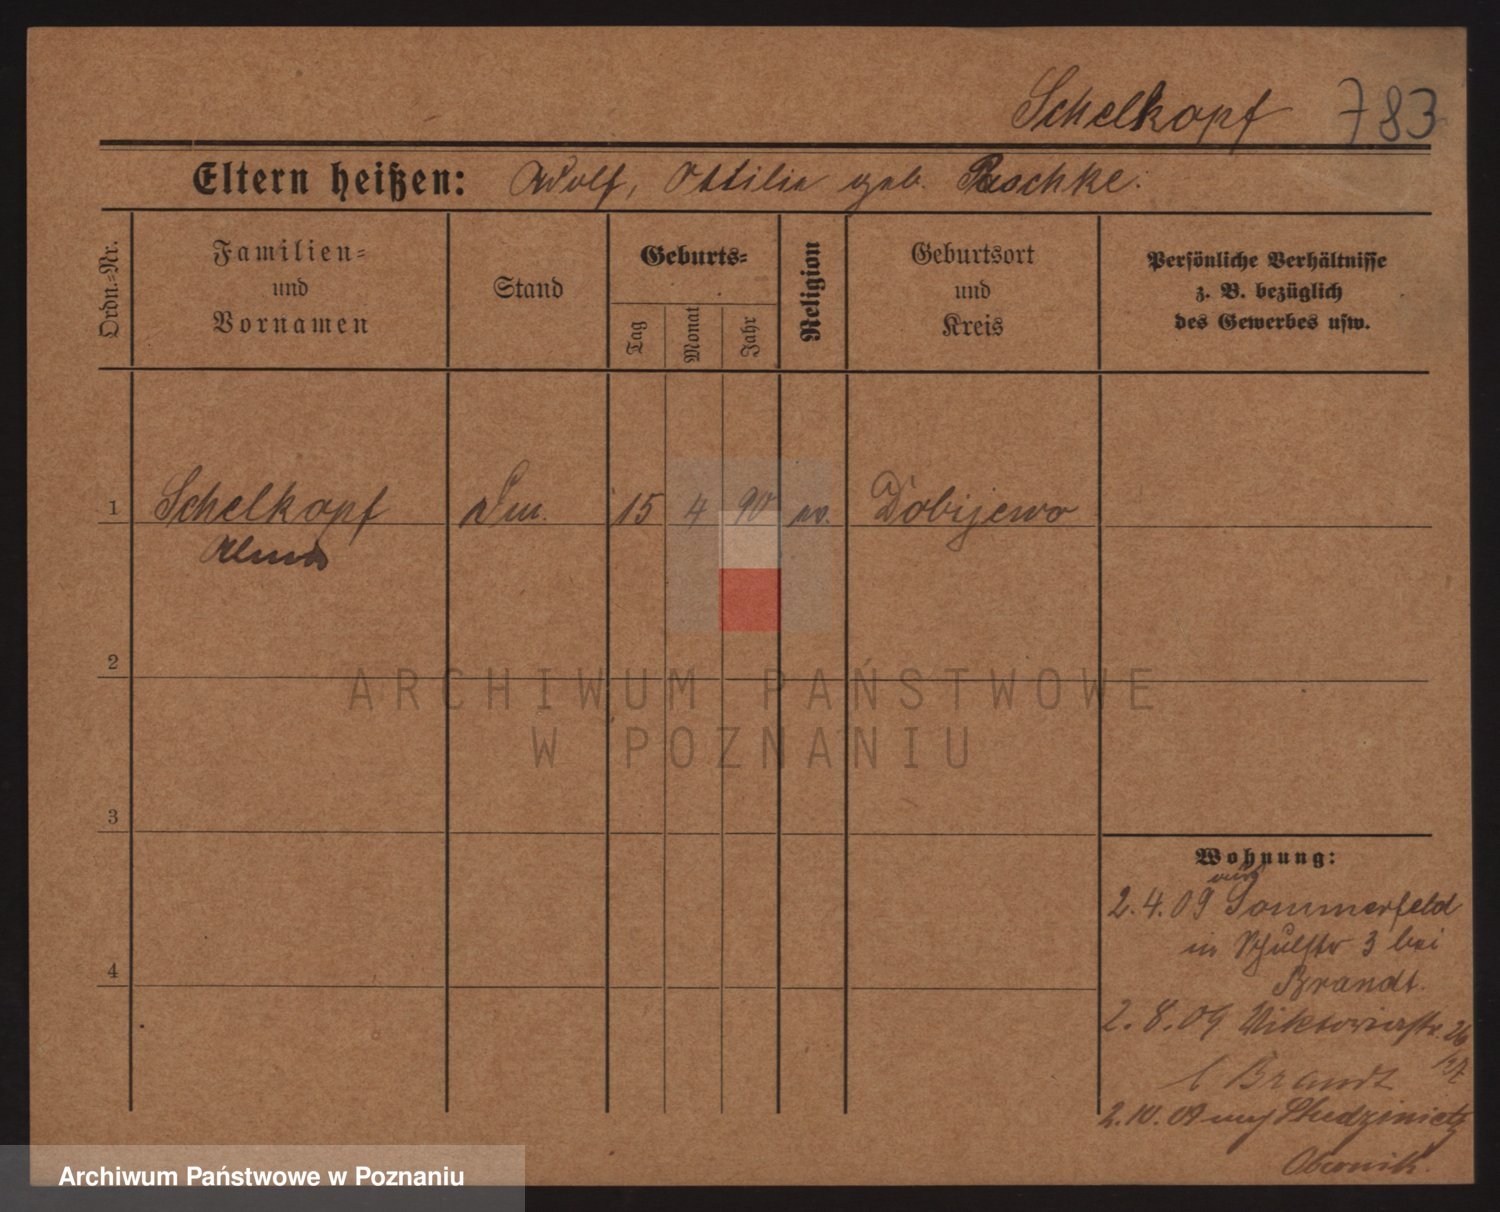 Schelkopf 783
Eltern heißen: Adolf, Ottilie geb. Paschke.
Ordn.-Nr.
Familien-
und
Vornamen
Stand
Geburts-
Tag
Monat
Jahr
Religion
Geburtsort
und
Kreis
Persönliche Verhältnisse
z. B. bezüglich
des Gewerbes usw.
1 Schelkopf 15 4 90 ev. Dobijewo
Alma
2
3
4
ARCHIWUM PAŃSTWOWE
W POZNANIU
Wohnung:
aus
2.4.09 Sommerfeld
in Schulstr 3 bei
Brandt.
2.8.09 Viktoriastr. 26
/27
b Brandt
2.10.09 nach
Obornik.
Archiwum Państwowe w Poznaniu